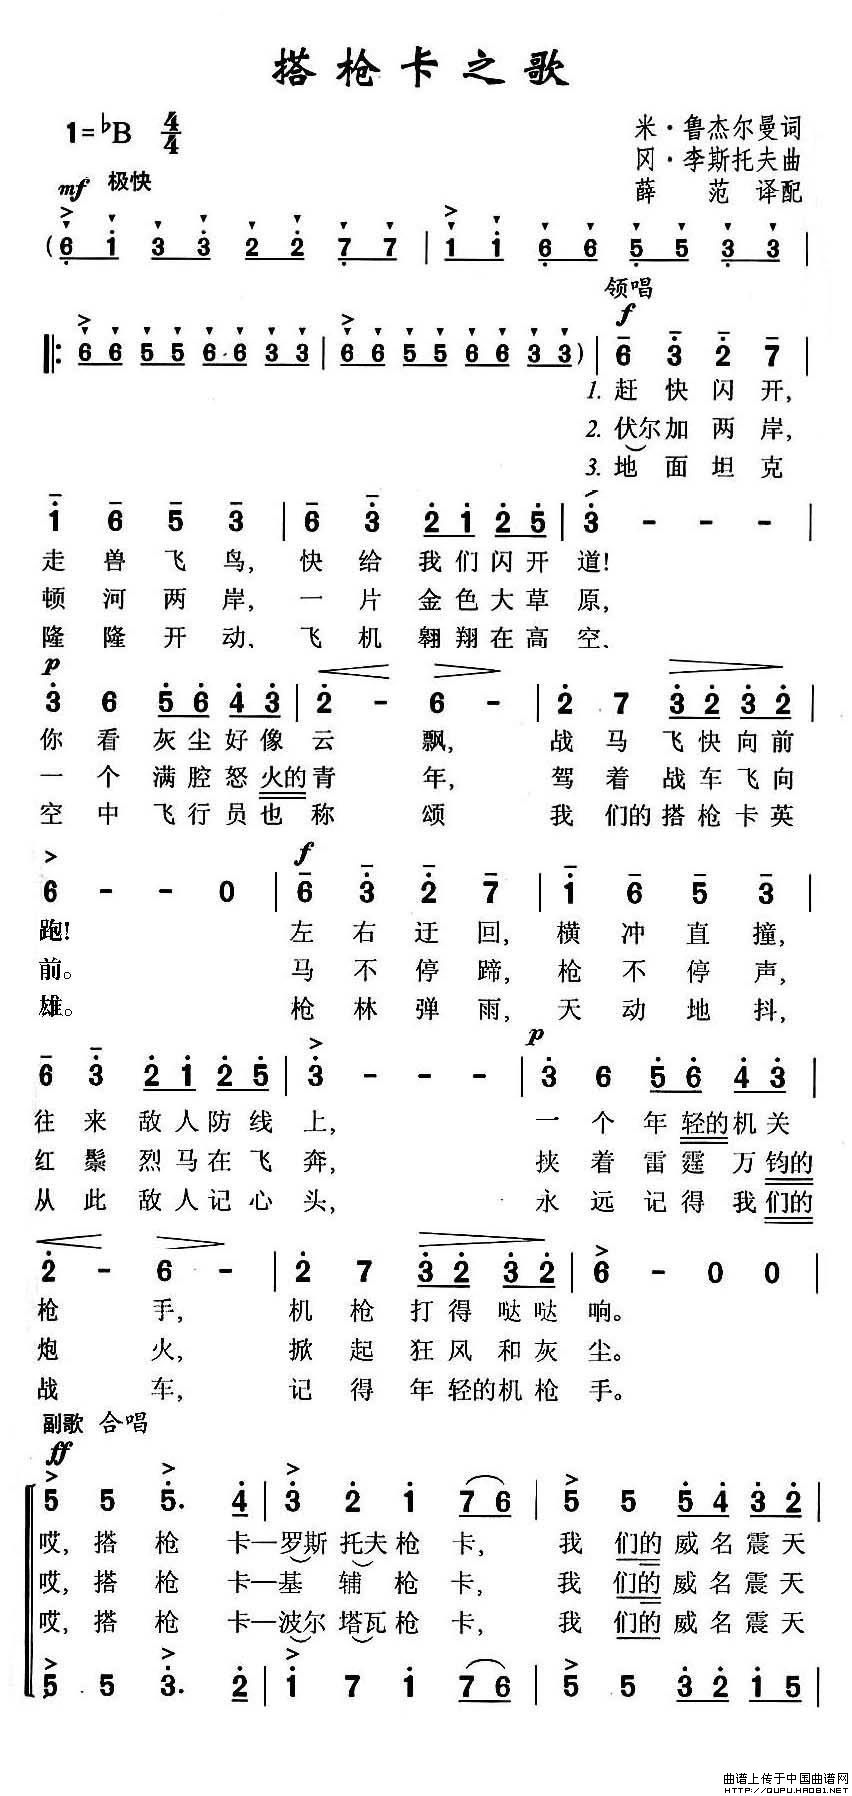 搭枪卡之歌
1=♭B 4/4
米·鲁杰尔曼词
冈·李斯托夫曲
薛 范 译配
mf 极快
( 6 i 3 3 2 2 7 7 | 1 i 6 6 5 5 3 3 |
领唱
f
‖: 6 6 5 5 6 6 3 3 | 6 6 5 5 6 6 3 3 ) | 6 3 2 7 |
1. 赶 快 闪 开,
2. 伏尔加 两 岸,
3. 地 面 坦 克
i 6 5 3 | 6 3 2 1 2 5 | 3 - - - |
走 兽 飞 鸟, 快 给 我 们 闪 开 道!
顿 河 两 岸, 一 片 金 色 大 草 原,
隆 隆 开 动, 飞 机 翱 翔 在 高 空,
p
3 6 5 6 4 3 | 2 - 6 - | 2 7 3 2 3 2 |
你 看 灰 尘 好 像 云 飘, 战 马 飞 快 向 前
一 个 满 腔 怒 火的 青 年, 驾 着 战 车 飞 向
空 中 飞 行 员 也 称 颂 我 们的 搭 枪 卡 英
f
6 - - 0 | 6 3 2 7 | i 6 5 3 |
跑! 左 右 迂 回, 横 冲 直 撞,
前。 马 不 停 蹄, 枪 不 停 声,
雄。 枪 林 弹 雨, 天 动 地 抖,
p
6 3 2 1 2 5 | 3 - - - | 3 6 5 6 4 3 |
往 来 敌 人 防 线 上, 一 个 年 轻的 机 关
红 鬃 烈 马 在 飞 奔, 挟 着 雷 霆 万 钧的
从 此 敌 人 记 心 头, 永 远 记 得 我 们的
2 - 6 - | 2 7 3 2 3 2 | 6 - 0 0 |
枪 手, 机 枪 打 得 哒 哒 响。
炮 火, 掀 起 狂 风 和 灰 尘。
战 车, 记 得 年 轻的 机 枪 手。
副歌 合唱
ff
5 5 5. 4 | 3 2 i 7 6 | 5 5 5 4 3 2 |
哎, 搭 枪 卡—罗斯 托夫 枪 卡, 我 们的 威 名 震 天
哎, 搭 枪 卡—基 辅 枪 卡, 我 们的 威 名 震 天
哎, 搭 枪 卡—波尔 塔瓦 枪 卡, 我 们的 威 名 震 天
5 5 3. 2 | 1 7 1 7 6 | 5 5 3 2 1 5 |
曲谱上传于中国曲谱网
HTTP://QUPU.HAO81.NET